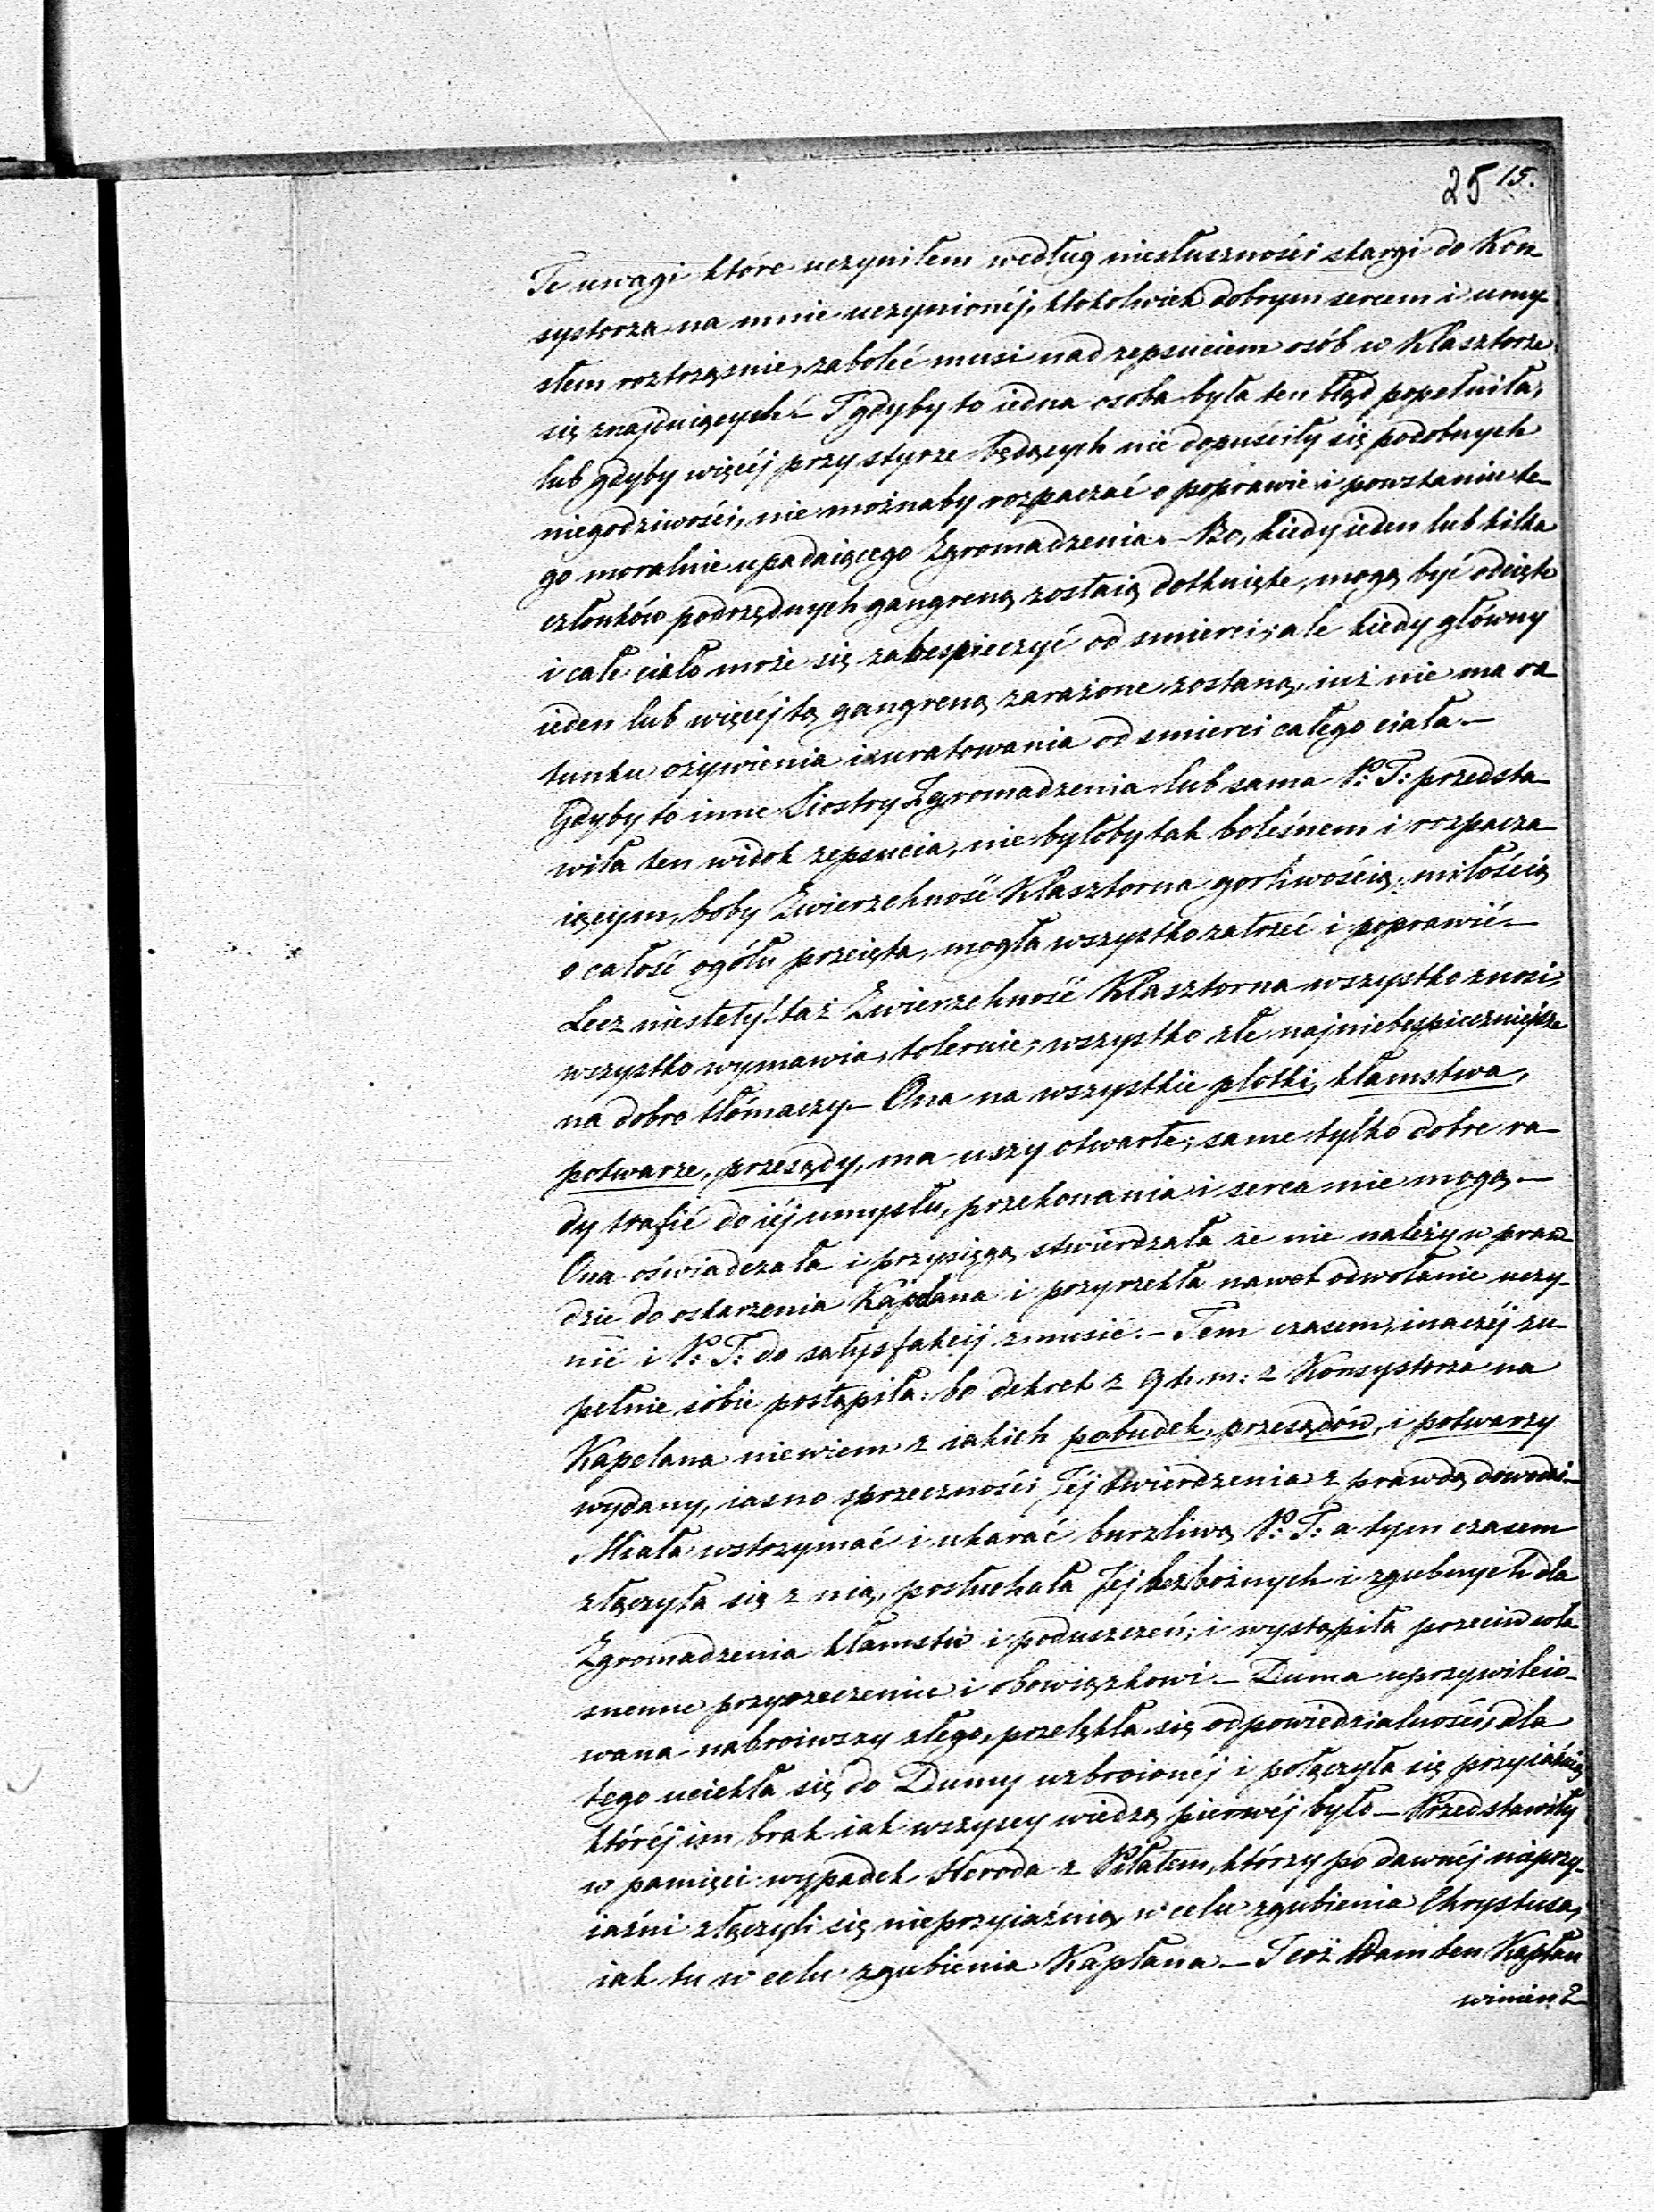 25 15.
Te uwagi które uczyniłem według niesłuszności skargi do Kon-
systorza na mnie uczynionéj, ktokolwiek dobrym sercem i umy-
słem roztrząśnie, zaboleć musi nad zepsuciem osób w Klasztorze
się znajduiących. I gdyby to iedna osoba była ten błąd popełniła,
lub gdyby więcéj przy styrze będących nie dopuściły się podobnych
niegodziwości, nie możnaby rozpaczać o poprawie i powstaniu te-
go moralnie upadaiącego Zgromadzenia. – Bo, kiedy ieden lub kilka
członków podrzędnych gangreną zostaią dotknięte, mogą być odcięte
i całe ciało może się zabespieczyć od smierci; ale kiedy główny
ieden lub więcéj tą gangreną zarażone zostaną, iuż nie ma ra-
tunku ożywienia i uratowania od smierci całego ciała. –
Gdyby to inne Siostry Zgromadzenia lub sama P: T: przedsta-
wiła ten widok zepsucia, nie byłoby tak boleśnem i rozpacza-
iącym, boby Zwierzchność Klasztorna gorliwością, miłością
o całość ogółu przeięta, mogła wszystko zatrzeć i poprawić. –
Lecz niestety! taż Zwierzchność Klasztorna wszystko znosi,
wszystko wymawia, toleruie, wszystko złe najniebespieczniejsze
na dobro tłómaczy. – Ona na wszystkie plotki, kłamstwa,
potwarze, przesądy, ma uszy otwarte; same tylko dobre ra-
dy trafić do iéj umysłu, przekonania i serca nie mogą. –
Ona oświadczała i przysięgą stwierdzała że nie należy w praw-
dzie do oskarzenia Kapelana i przyrzekła nawet odwołanie uczy-
nić i P: T: do satysfakcij zmusić. – Tem czasem, inaczéj zu-
pełnie sobie postąpiła: bo dekret z 9 t. m: z Konsystorza na
Kapelana niewiem z iakich pobudek, przesądów, i potwarzy
wydany, iasno sprzeczności Jéj twierdzenia z prawdą dowodzi. –
Miała wstrzymać i ukarać burzliwą P: T: a tym czasem
złączyła się z nią, posłuchała Jej bezbożnych i zgubnych dla
Zgromadzenia kłamstw i poduszczeń; i wystąpiła przeciw wła-
snemu przyrzeczeniu i obowiązkowi. – Duma uprzywileio-
wana nabroiwszy złego, przelękła się odpowiedzialności, dla
tego uciekła się do Dumy uzbroionéj i połączyła się przyiaźnią
któréj im brak iak wszyscy wiedzą pierwéj było – Przedstawiły
w pamięci wypadek Heroda z Piłatem, którzy po dawnéj nieprzy-
iaźni złączyli się nieprzyiaźnią w celu zgubienia Chrystusa,
iak tu w celu zgubienia Kapłana – I cóż Wam ten Kapłan
winien?